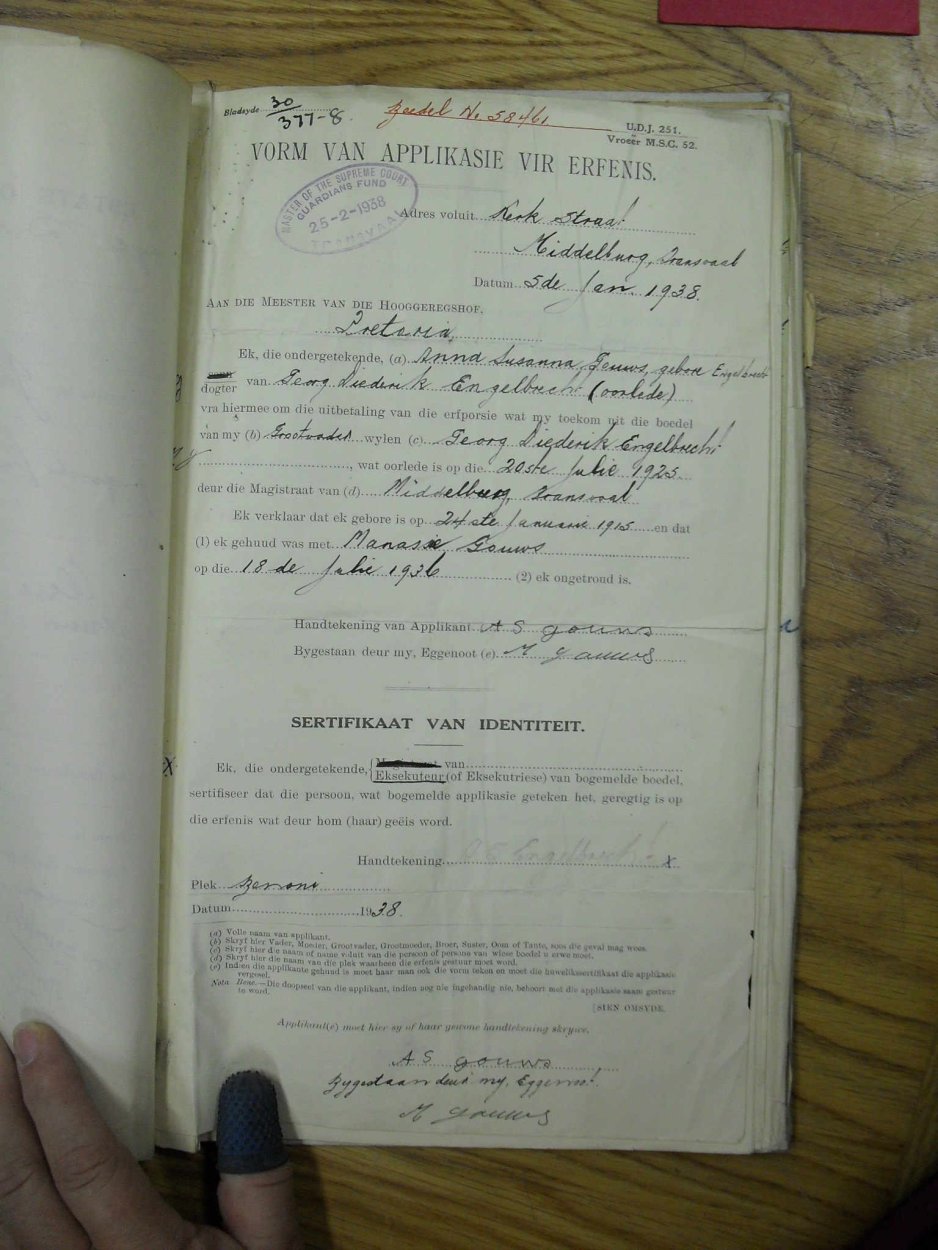 Bladsyde 30/377-8. Boedel No. 58461.
U.D.J. 251.
Vroeër M.S.C. 52.
VORM VAN APPLIKASIE VIR ERFENIS.
MASTER OF THE SUPREME COURT
GUARDIANS FUND
25-2-1938
TRANSVAAL
Adres voluit Kerk Straat
Middelburg, Transvaal
Datum 5de Jan. 1938.
AAN DIE MEESTER VAN DIE HOOGGEREGSHOF.
Pretoria,
Ek, die ondergetekende, (a) Anna Susanna Gouws, gebore Engelbrecht
dogter van Georg Diederik Engelbrecht (oorlede)
vra hiermee om die uitbetaling van die erfporsie wat my toekom uit die boedel
van my (b) Grootvader wylen (c) Georg Diederik Engelbrecht
, wat oorlede is op die 20ste Julie 1925.
deur die Magistraat van (d) Middelburg, Transvaal
Ek verklaar dat ek gebore is op 24ste Januarie 1915 en dat
(1) ek gehuud was met Manasse Gouws
op die 18de Julie 1936 (2) ek ongetroud is.
Handtekening van Applikant A S Gouws
Bygestaan deur my, Eggenoot (e) M Gouws
SERTIFIKAAT VAN IDENTITEIT.
Ek, die ondergetekende, { Magistraat van
Eksekuteur (of Eksekutriese) van bogemelde boedel,
sertifiseer dat die persoon, wat bogemelde applikasie geteken het, geregtig is op
die erfenis wat deur hom (haar) geëis word.
Handtekening Engelbrecht x
Plek Benoni
Datum 1938.
(a) Volle naam van applikant.
(b) Skryf hier Vader, Moeder, Grootvader, Grootmoeder, Broer, Suster, Oom of Tante, soos die geval mag wees.
(c) Skryf hier die naam of name voluit van die persoon of persone van wiese boedel u erwe moet.
(d) Skryf hier die naam van die plek waarheen die erfenis gestuur moet word.
(e) Indien die applikante gehuud is moet haar man ook die vorm teken en moet die huweliksertifikaat die applikasie
vergesel.
Nota Bene.—Die doopseel van die applikant, indien nog nie ingehandig nie, behoort met die applikasie saam gestuur
te word.
[SIEN OMSYDE.
Applikant(e) moet hier sy of haar gewone handtekening skrywe.
A S Gouws
Bygestaan deur my, Eggenoot.
M Gouws